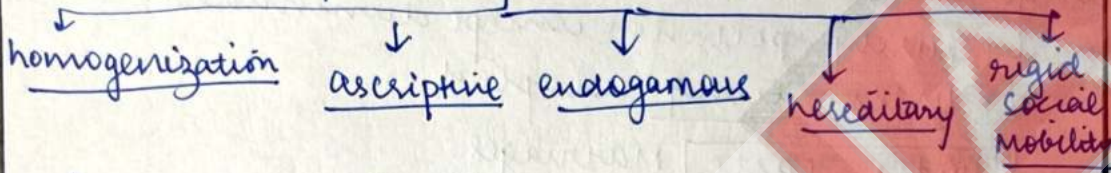 homogenization
ascriptive
endogamous
hereditary
rigid
social
mobility